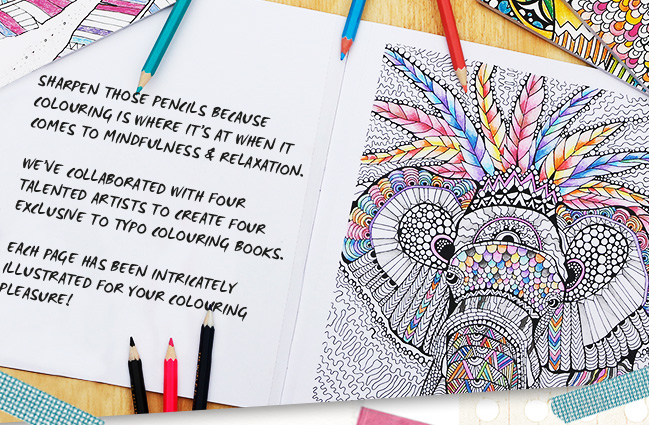 SHARPEN THOSE PENCILS BECAUSE
COLOURING IS WHERE IT'S AT WHEN IT
COMES TO MINDFULNESS & RELAXATION.
WE'VE COLLABORATED WITH FOUR
TALENTED ARTISTS TO CREATE FOUR
EXCLUSIVE TO TYPO COLOURING BOOKS.
EACH PAGE HAS BEEN INTRICATELY
ILLUSTRATED FOR YOUR COLOURING
PLEASURE!